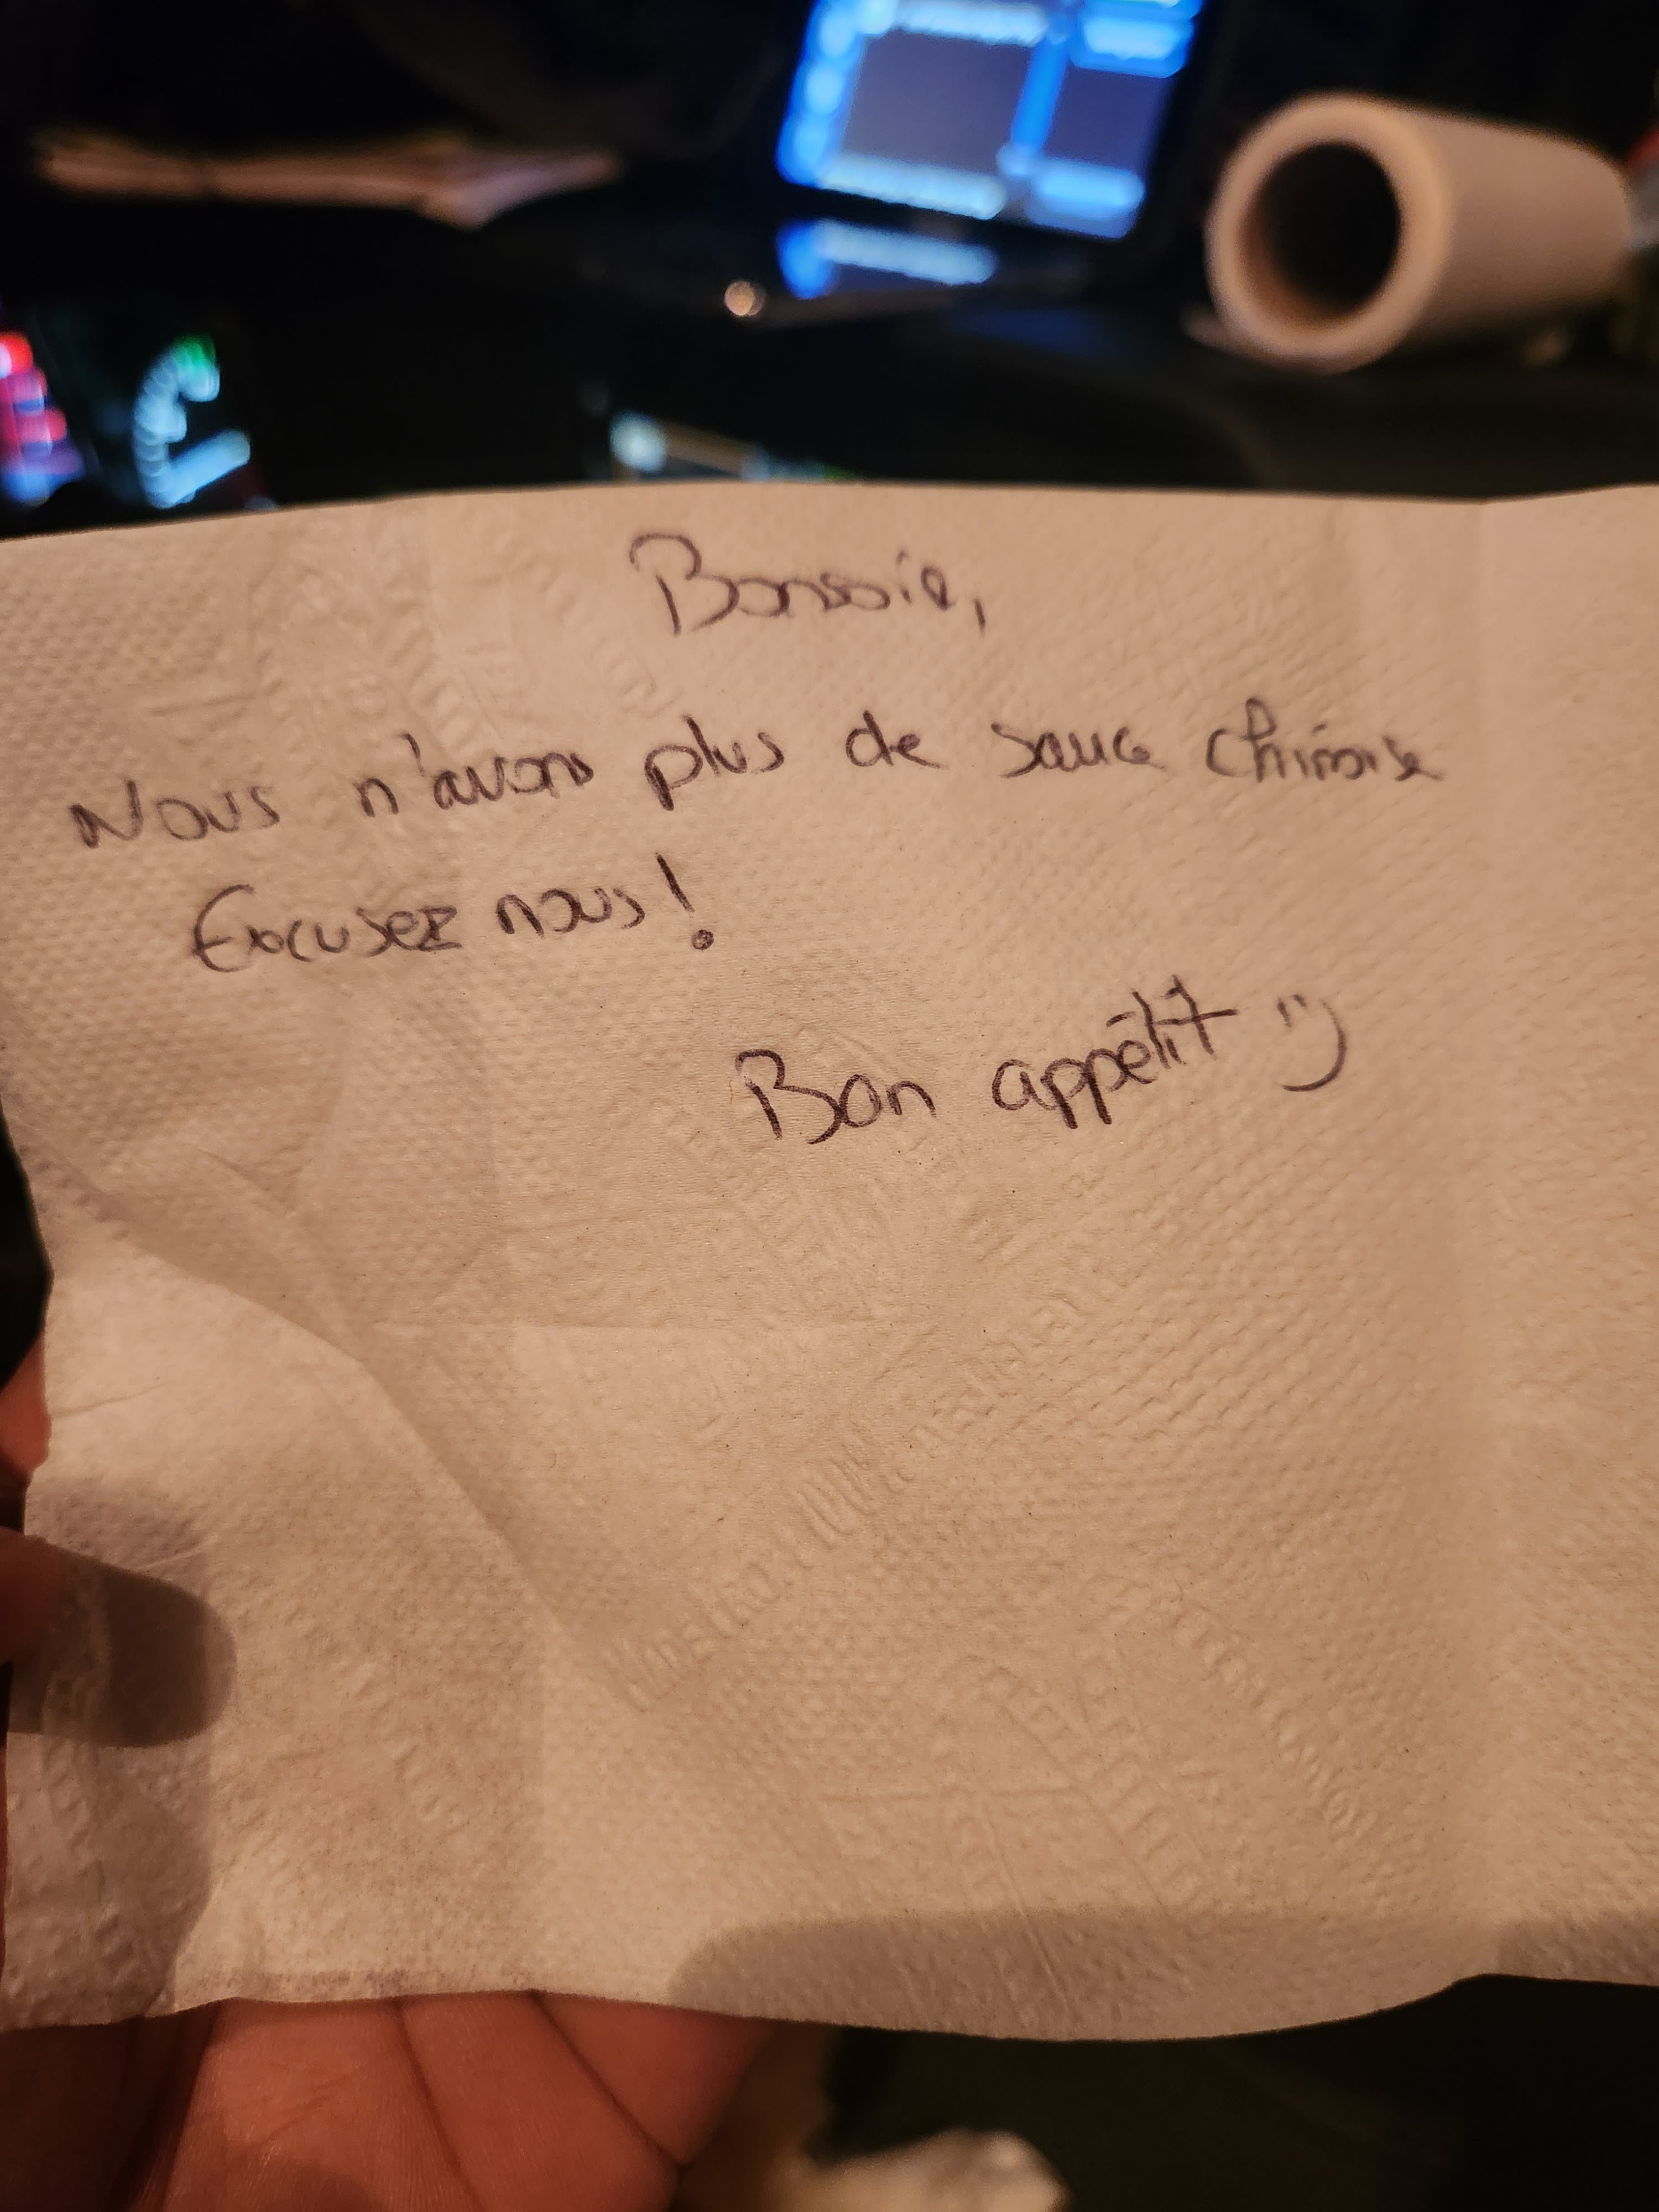 Bonsoir,
Nous n'avons plus de sauce chinoise
Excusez nous !
Bon appétit :)